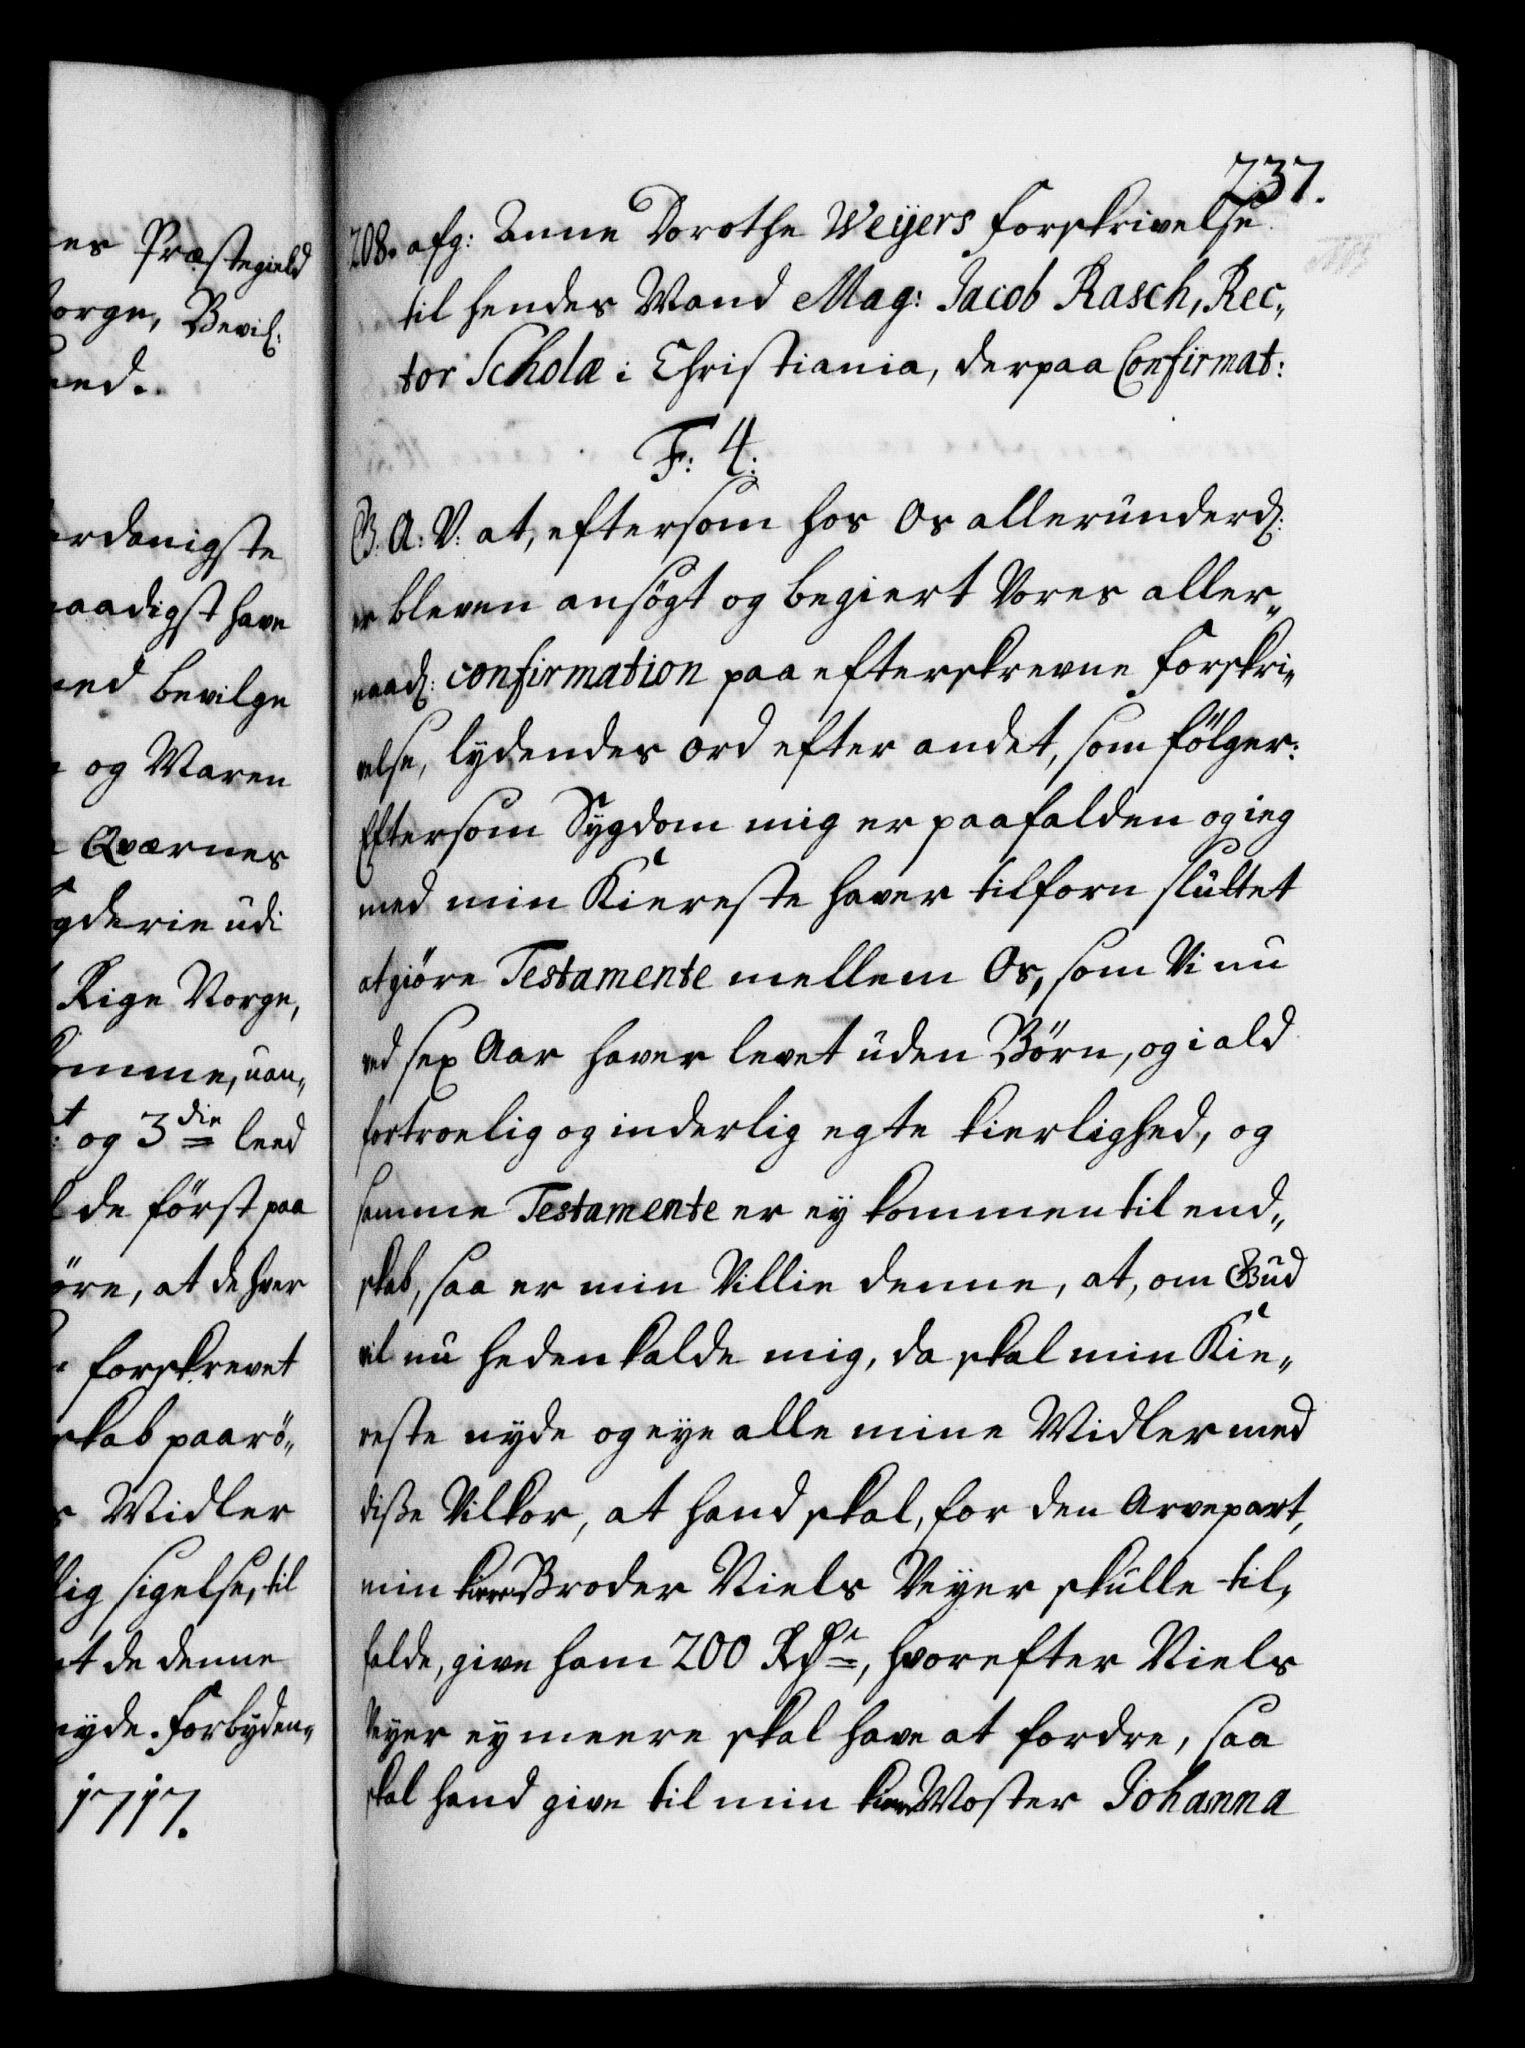 es Præstegield
orge, Bevil:
end.
erdanigste
naadigst have
ned bevilge
og Maren
Qværnes
gderie udi
Rige Norge,
komme, uan„
t: og 3die leed
de först paa
öre, at de hver
forskrevet
skab paarö„
s Midler
lig sigelse, til
at de denne
nyde. Forbyden„
1717.
237.
208. afg: Anne Dorothe Weyers Forskrivelse
til hendes Mand Mag: Jacob Rasch, Rec„
tor Scholæ i Christiania, derpaa Confirmat:
F: 4.
G: A: V: at, eftersom hos Os allerunderd:
er bleven ansögt og begiert Vores aller„
naad: confirmation paa efterskrevne Forskri„
velse, lydendes ord efter andet, som fölger:
Eftersom Sygdom mig er paafalden og ieg
med min Kiereste haver tilforn sluttet
at giöre Testamente mellem Os, som Vi nu
ved sex Aar haver levet uden Börn, og i ald
fortroelig og inderlig egte kierlighed, og
samme Testamente er ey kommen til end„
skab, saa er min Villie denne, at, om Gud
vil nu hedenkalde mig, da skal min Kie„
reste nyde og eye alle mine Midler med
disse Vilkor, at hand skal, for den Arvepart,
min kiere Broder Niels Veyer skulle til„
falde, give ham 200 Rdr, hvorefter Niels
Veyer ey meere skal have at fordre, saa
skal hand give til min kiere Moster Johanna